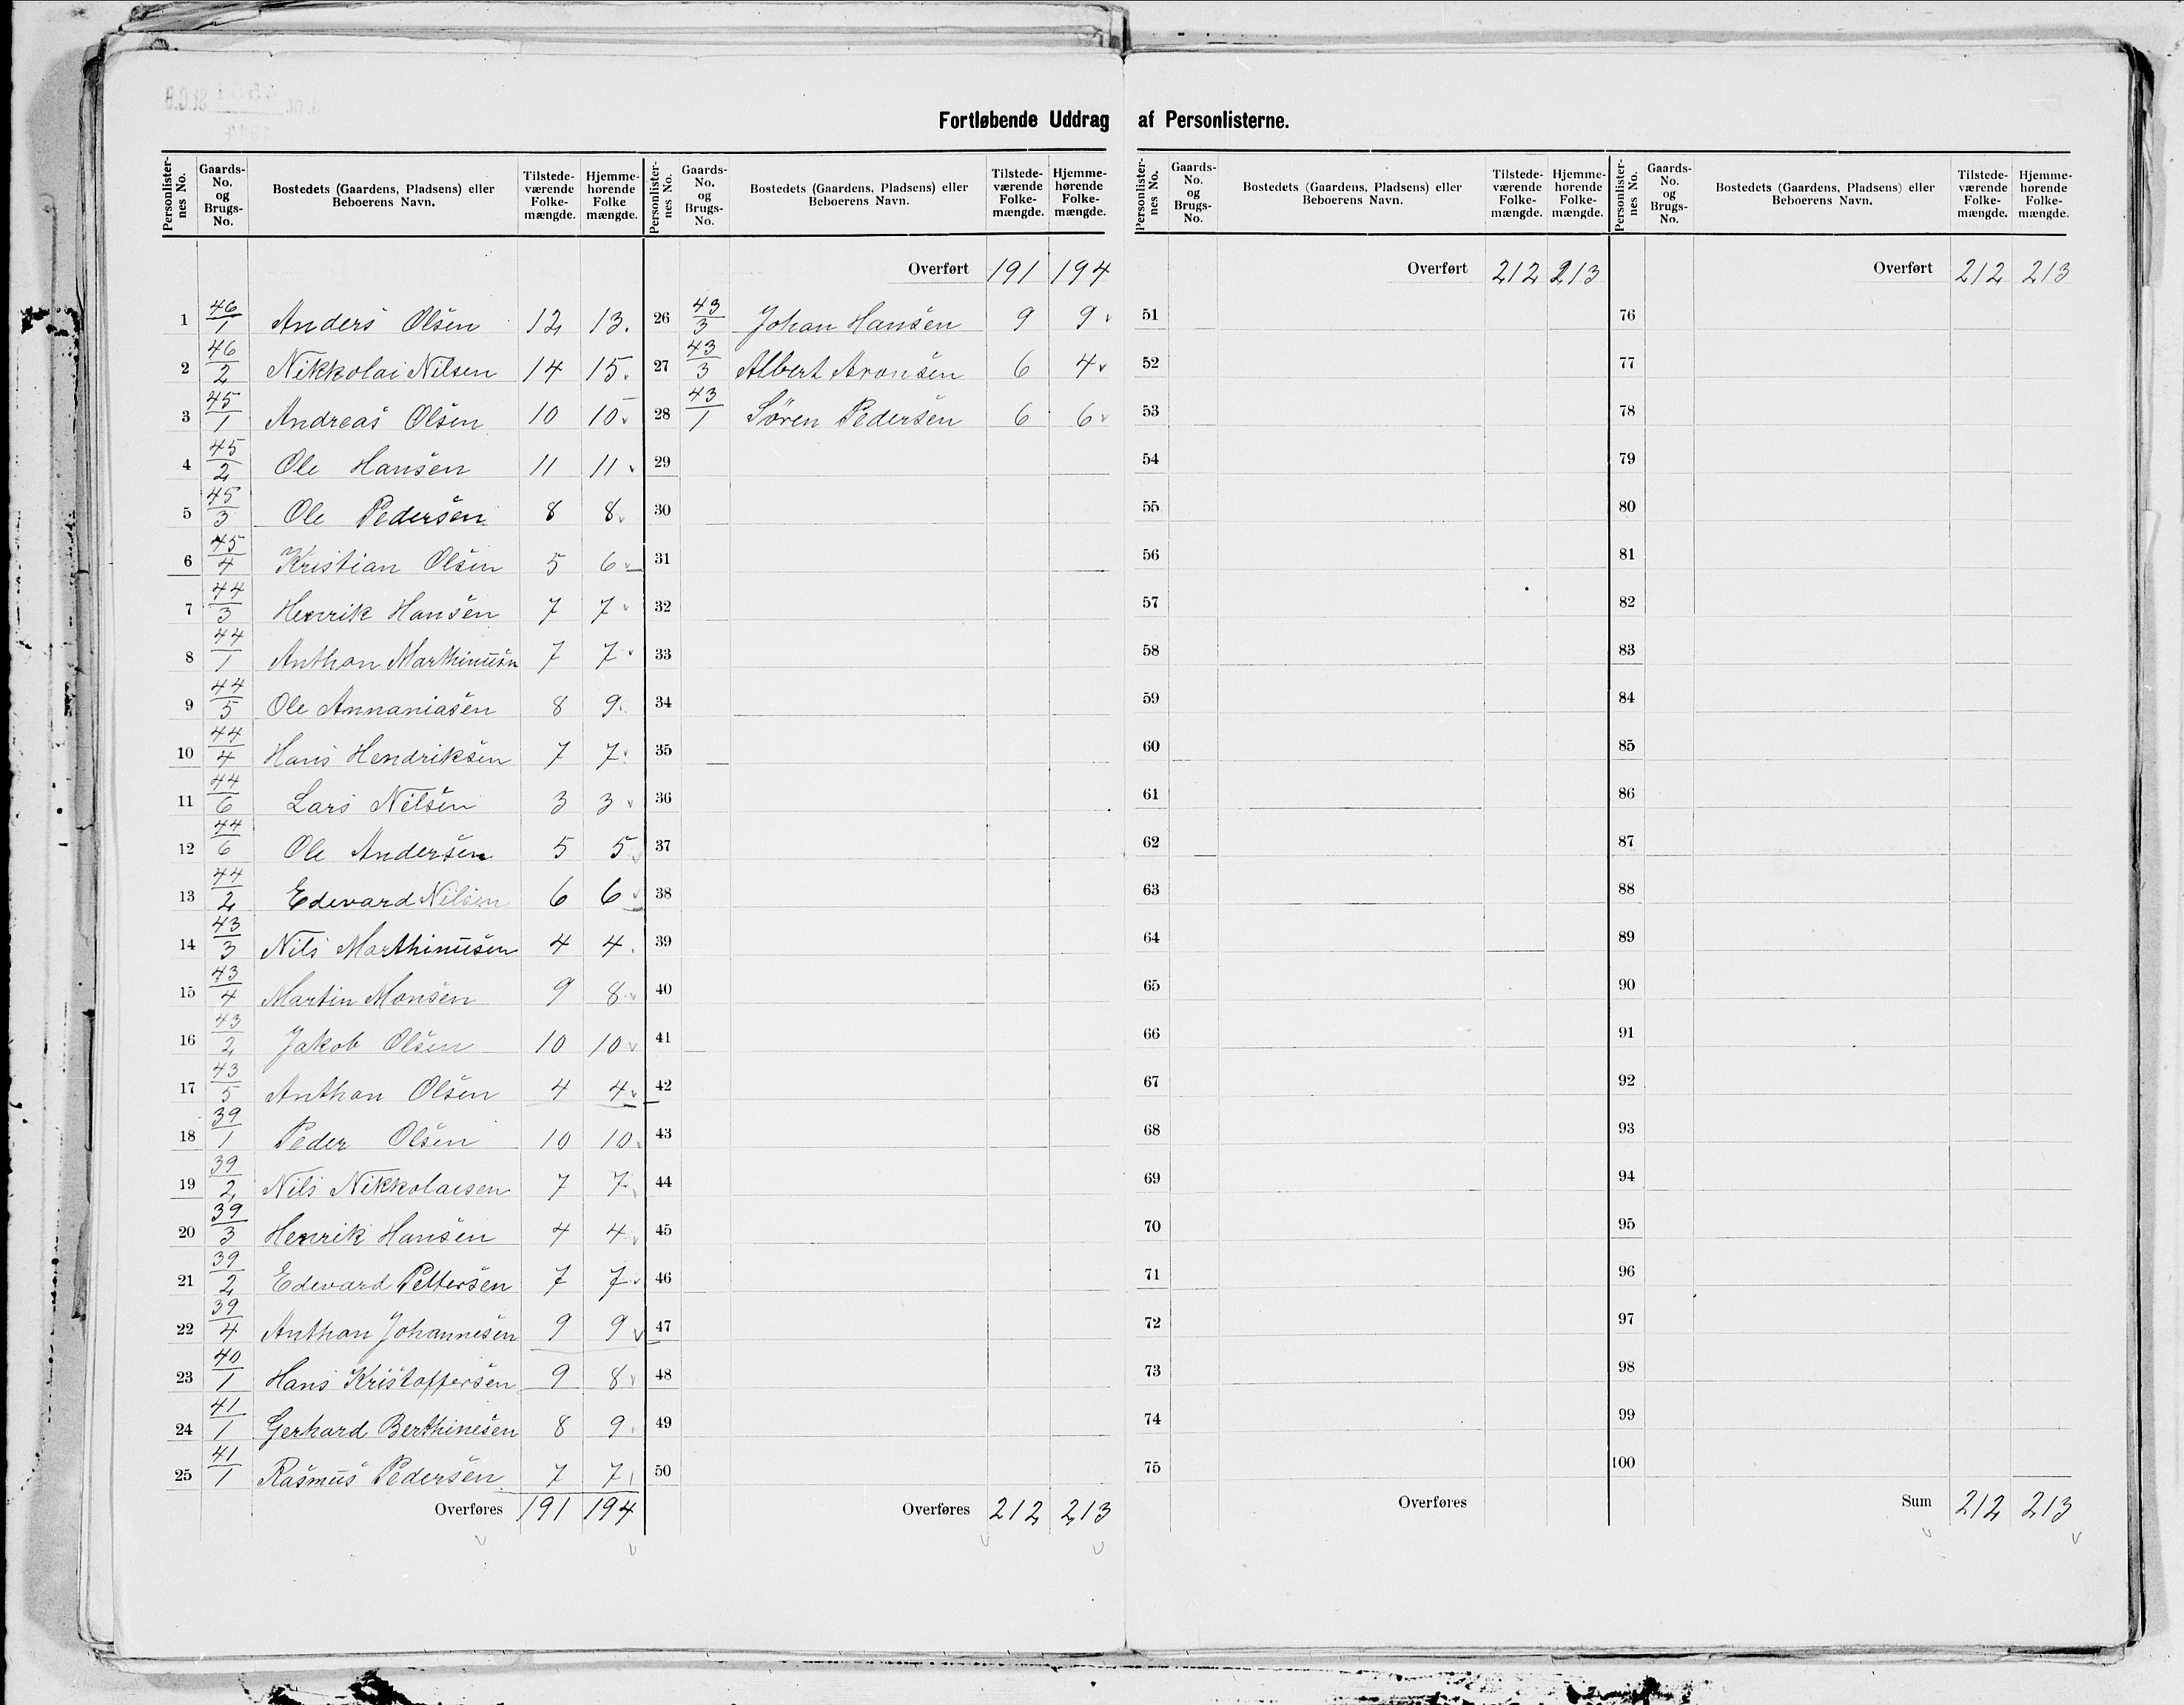 Fortløbende Uddrag af Personlisterne.
Personlister-nes No. Gaards-No. og Brugs-No. Bostedets (Gaardens, Pladsens) eller Beboerens Navn. Tilstede-værende Folke-mængde. Hjemme-hørende Folke mængde. Personlister-nes No. Gaards-No. og Brugs-No. Bostedets (Gaardens, Pladsens) eller Beboerens Navn. Tilstede-værende Folke-mængde. Hjemme-hørende Folke-mængde. Personlister-nes No. Gaards-No. og Brugs-No. Bostedets (Gaardens, Pladsens) eller Beboerens Navn. Tilstede-værende Folke-mængde. Hjemme-hørende Folke-mængde. Personlister-nes No. Gaards-No. og Brugs-No. Bostedets (Gaardens, Pladsens) eller Beboerens Navn. Tilstede-værende Folke-mængde. Hjemme-hørende Folke-mængde.
Overført 191 194 Overført 212 213 Overført 212 213
1 46/1 Anders Olsen 12 13. 26 43/3 Johan Hansen 9 9 51 76
2 46/2 Nikkolai Nilsen 14 15. 27 43/3 Albert Aronsen 6 4 52 77
3 45/1 Andreas Olsen 10 10 28 43/1 Søren Pedersen 6 6 53 78
4 45/2 Ole Hansen 11 11 29 54 79
5 45/3 Ole Pedersen 8 8 30 55 80
6 45/4 Kristian Olsen 5 6 31 56 81
7 44/3 Henrik Hansen 7 7 32 57 82
8 44/1 Anthon Marthinusn 7 7 33 58 83
9 44/5 Ole Annaniasen 8 9. 34 59 84
10 44/4 Hans Hendriksen 7 7 35 60 85
11 44/6 Lars Nilsen 3 3 36 61 86
12 44/6 Ole Andersen 5 5 37 62 87
13 44/2 Edevard Nilsen 6 6 38 63 88
14 43/3 Nils Marthinusen 4 4 39 64 89
15 43/4 Martin Monsen 9 8 40 65 90
16 43/2 Jakob Olsen 10 10 41 66 91
17 43/5 Anthon Olsen 4 4 42 67 92
18 39/1 Peder Olsen 10 10 43 68 93
19 39/2 Nils Nikkolaisen 7 7 44 69 94
20 39/3 Henrik Hansen 4 4 45 70 95
21 39/2 Edevard Pettersen 7 7 46 71 96
22 39/4 Anthon Johannesen 9 9 47 72 97
23 40/1 Hans Kristoffersen 9 8 48 73 98
24 41/1 Gerhard Berthinesen 8 9 49 74 99
25 41/1 Rasmus Pedersen 7 7 50 75 100
Overføres 191 194 Overføres 212 213 Overføres Sum 212 213